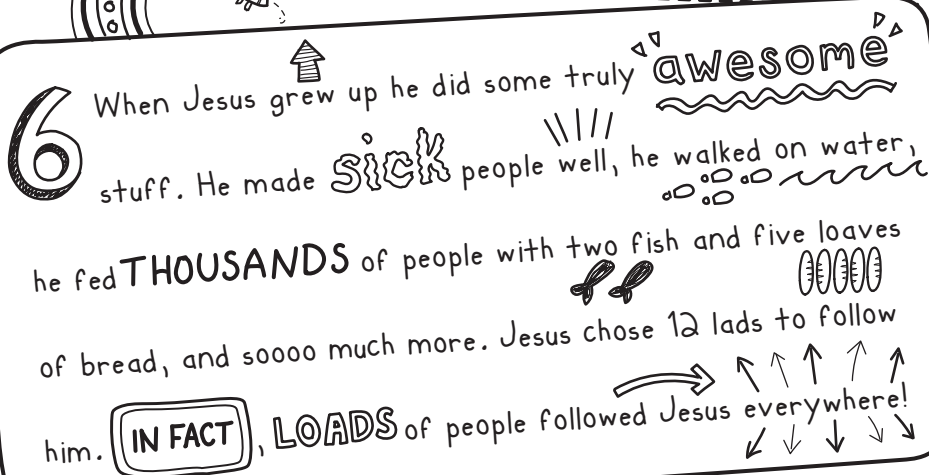 6 When Jesus grew up he did some truly awesome
stuff. He made sick people well, he walked on water,
he fed THOUSANDS of people with two fish and five loaves
of bread, and soooo much more. Jesus chose 12 lads to follow
him. IN FACT, LOADS of people followed Jesus everywhere!